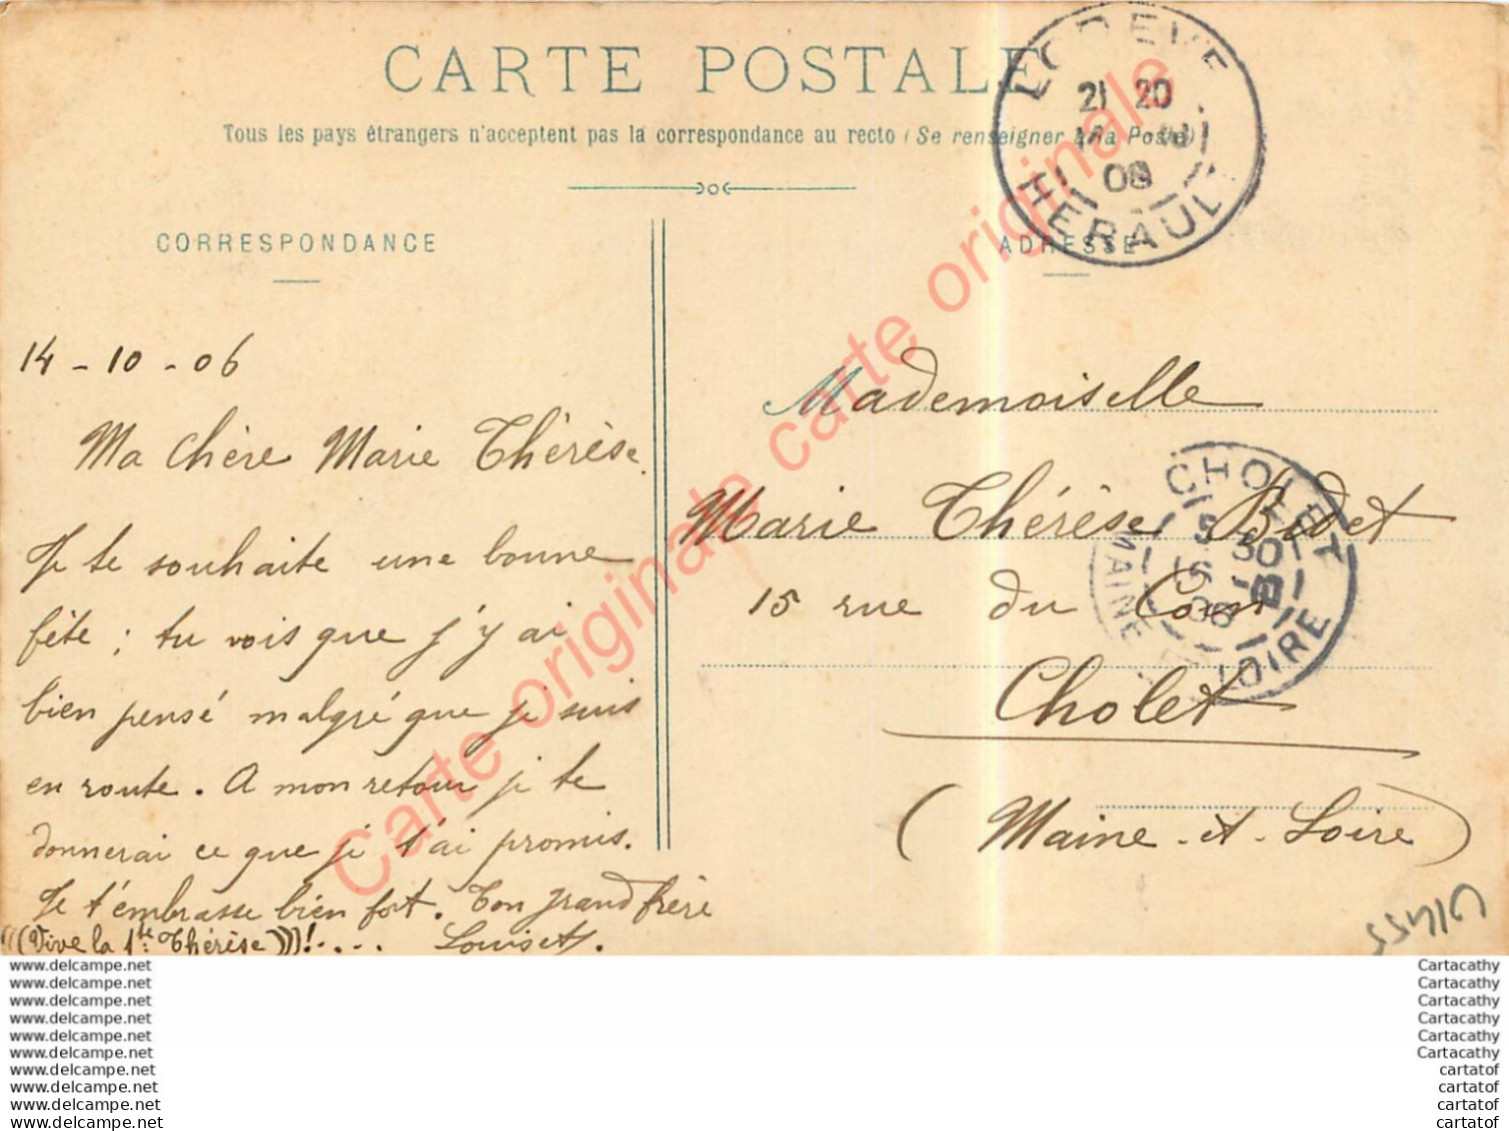 CARTE POSTALE
Tous les pays étrangers n'acceptent pas la correspondance au recto (Se renseigner à la Poste)
LODEVE
21 20
08
HERAULT
CORRESPONDANCE
ADRESSE
14-10-06
Ma chère Marie Thérèse.
Je te souhaite une bonne
fête ; tu vois que j'y ai
bien pensé malgré que je suis
en route. A mon retour je te
donnerai ce que je t'ai promis.
Je t'embrasse bien fort. Ton grand frère
(((Vive la Ste Thérèse)))!....
Mademoiselle
Marie Thérèse Bidet
15 rue du
Cholet
(Maine-et-Loire)
CHOLET
MAINE ET LOIRE
Carte originale carte originale carte originale
www.delcampe.net
www.delcampe.net
www.delcampe.net
www.delcampe.net
www.delcampe.net
www.delcampe.net
www.delcampe.net
www.delcampe.net
www.delcampe.net
www.delcampe.net
Cartacathy
Cartacathy
Cartacathy
Cartacathy
Cartacathy
Cartacathy
cartatof
cartatof
cartatof
cartatof